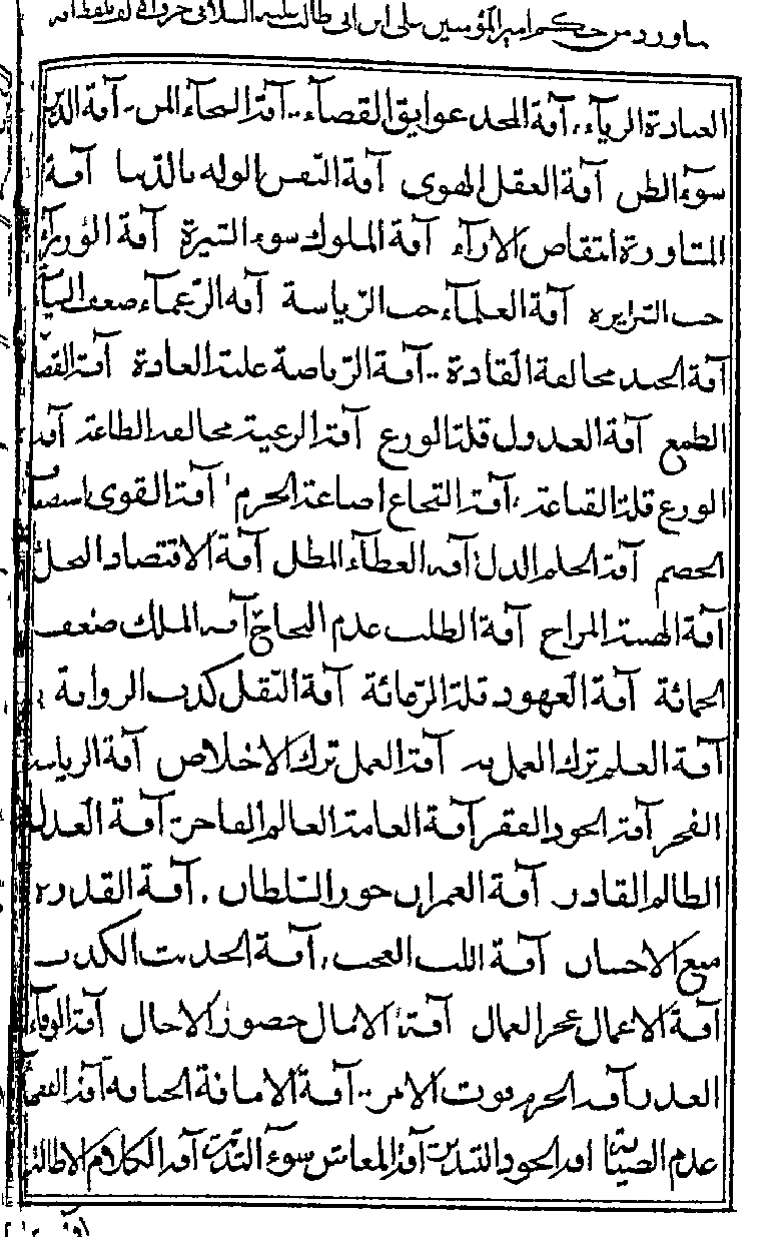 مما ورد من حكم امير المؤمنين علي ابن ابي طالب عليه السلام في حرف الالف بلفظ آفة
العبادة الرياء، آفة المجد عوايق القضاء .. آفة السخاء المن .. آفة الدين
سوء الظن آفة العقل الهوى آفة النفس الوله بالدنيا آفة
المشاورة انتقاض الاراء آفة الملوك سوء السيرة آفة الوزراء
خبث السريره آفة العلماء حب الرياسة آفة الزعماء ضعف السياسة
آفة الجند مخالفة القادة .. آفة الرياضة غلبة العادة آفة القضاة
الطمع آفة العدول قلة الورع آفة الرعية مخالفة الطاعة آفة
الورع قلة القناعة، آفة الشجاع اضاعة الحزم آفة القوى استضعاف
الخصم آفة الحلم الذل آفة العطاء المطل آفة الاقتصاد البخل
آفة الهيبة المزاح آفة الطلب عدم النجاح آفة الملك ضعف
الحماية آفة العهود قلة الرعاية آفة النقل كذب الرواية
آفة العلم ترك العمل به آفة العمل ترك الاخلاص آفة الرياسة
الفخر آفة الجود الفقر آفة العامة العالم الفاجر آفة العدل
الظالم القادر آفة العمران جور السلطان . آفة القدرة
منع الاحسان آفة اللب العجب، آفة الحديث الكذب
آفة الاعمال عجز العمال آفة الامال حضور الاجال آفة الوفاء
الغدر آفة الحزم فوت الامر .. آفة الامانة الخيانة آفة
عدم الصيانة آفة الجود التبذير آفة المعاش سوء التدبير آفة الكلام الاطالة